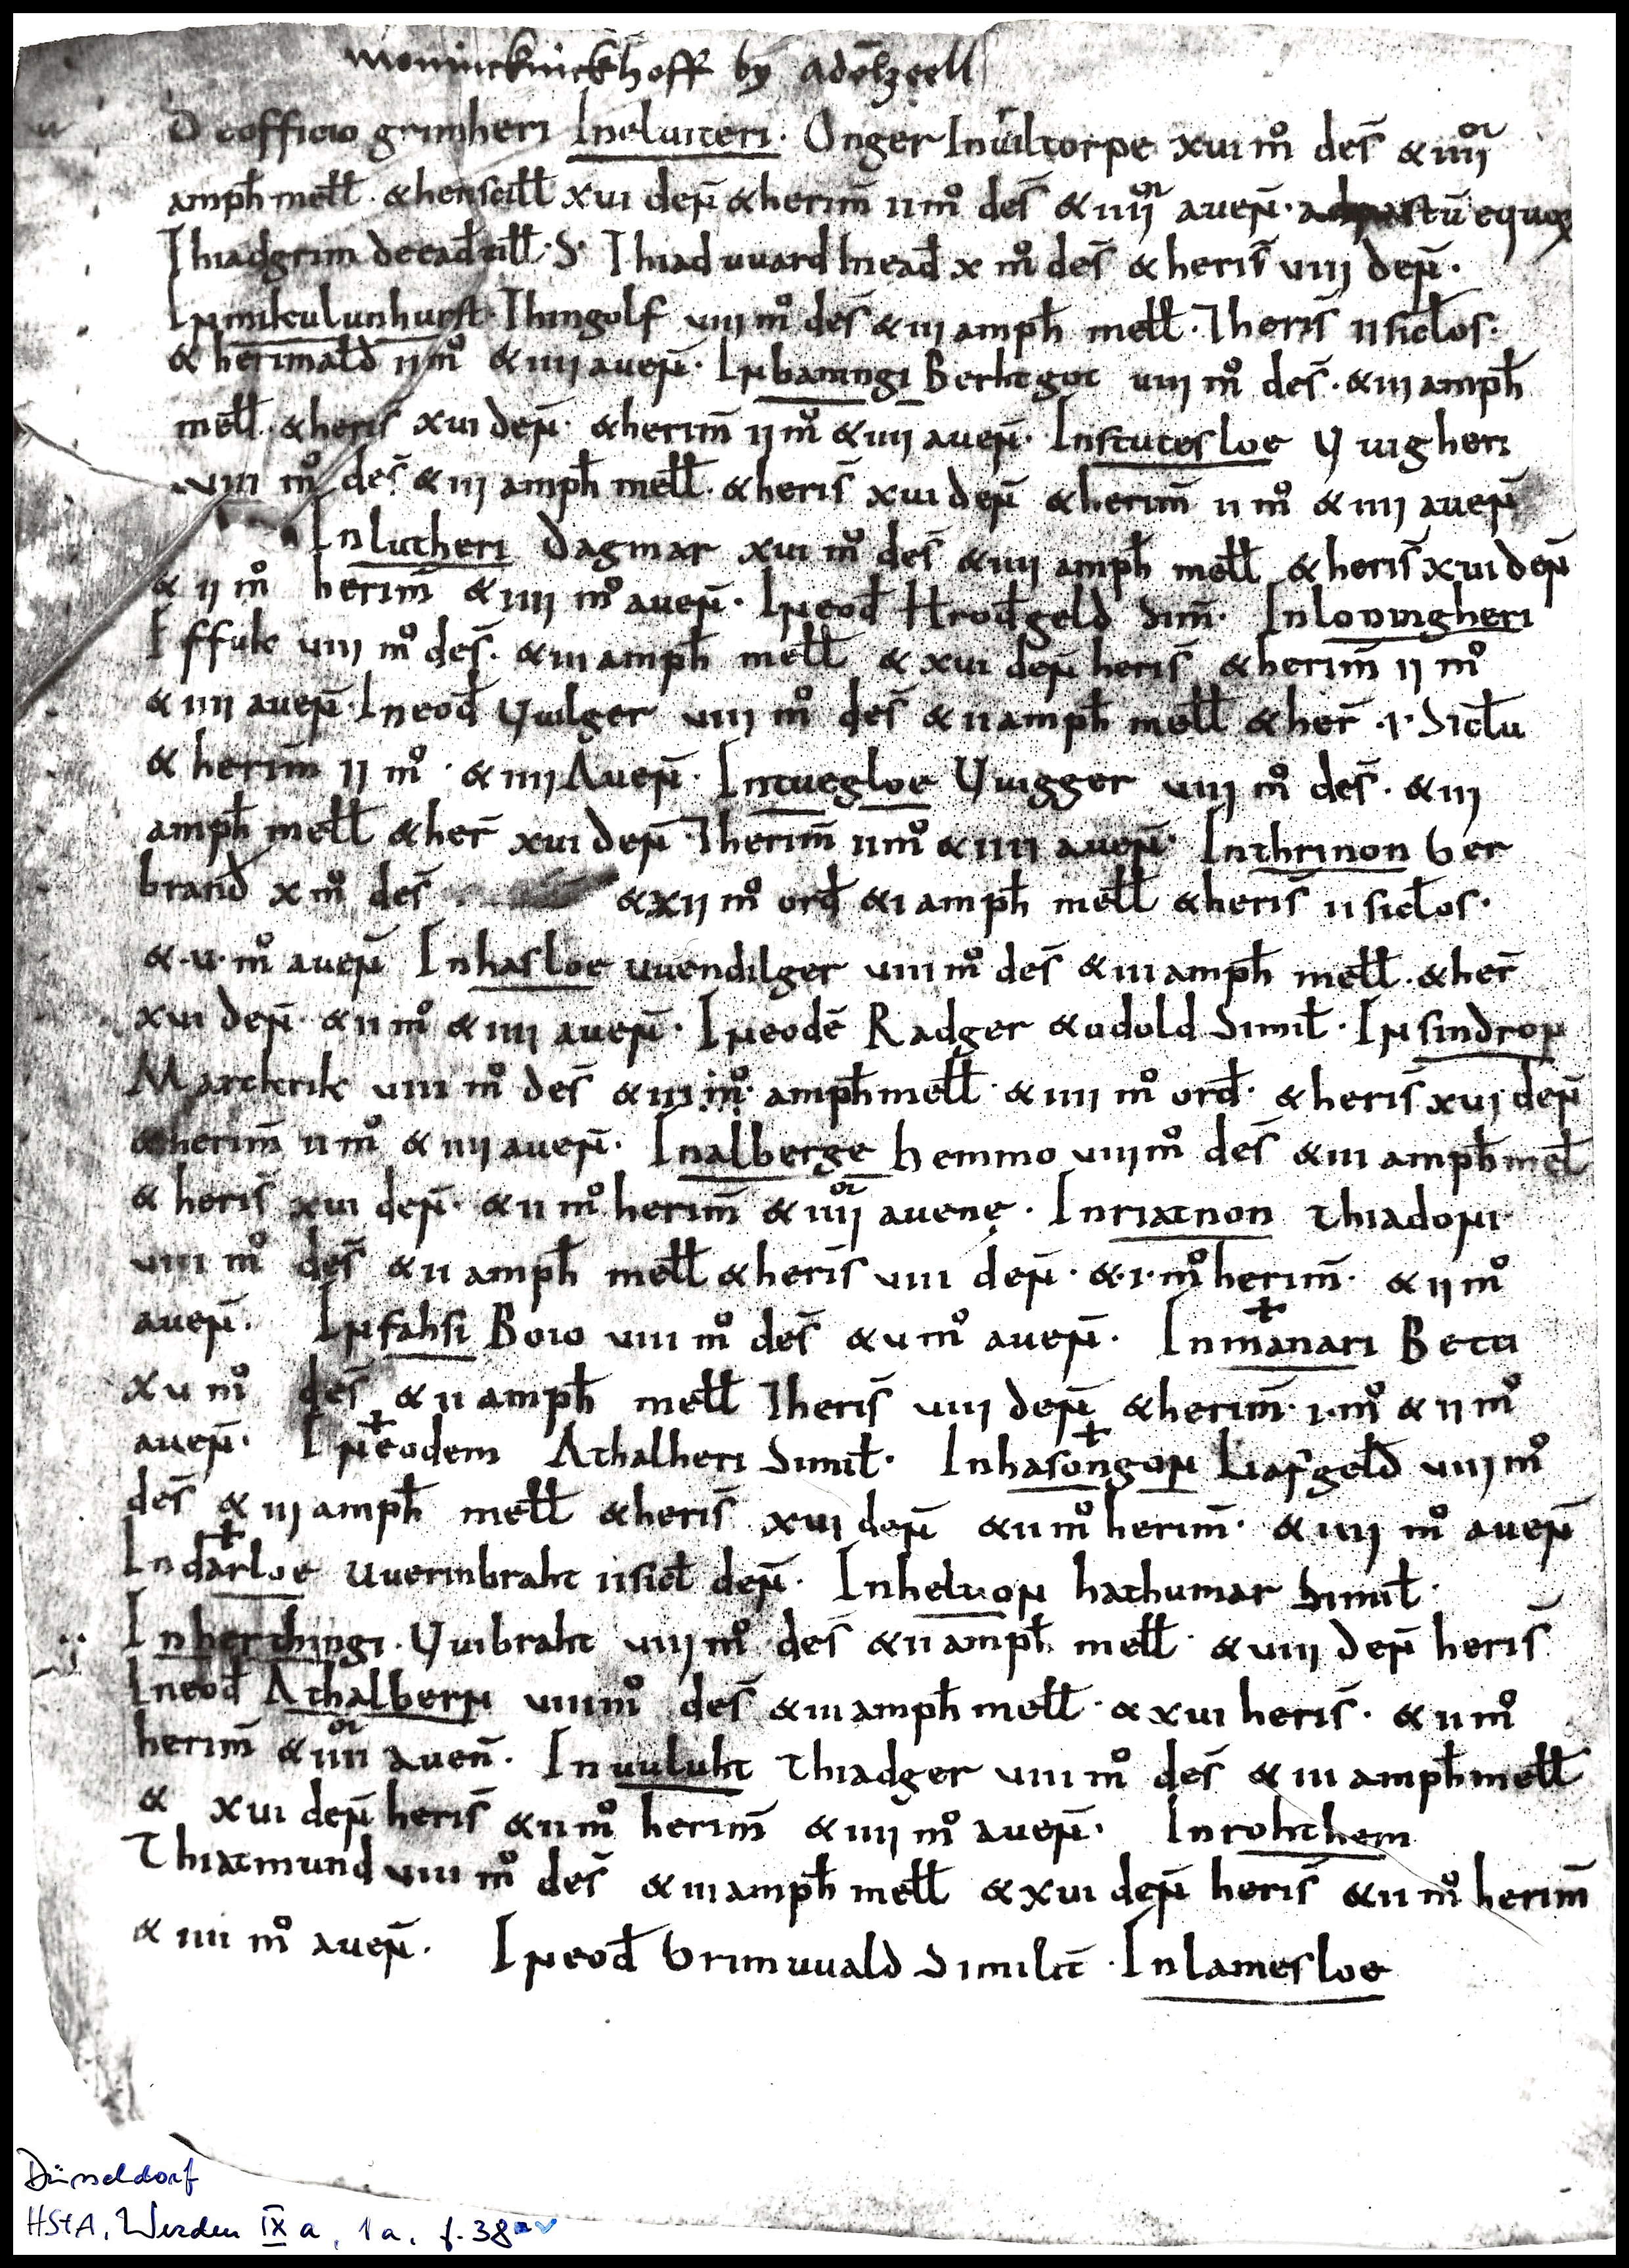 moninckinckhoff by adolzcell
De officio grimheri Inelmteri. Onger Inuiltorpe xvi m̊ des̄ & iiiior
amph̄ mell̄. & heriscill̄ xvi deñ & herim̄ ii m̊ des̄ & iiiior aueñ. equoꝝ
Thiadgrim de ead uill̄. S. Thiaduuard In ead̄ x m̊ des̄ & heris̄ viii deñ.
In mikulunhurst. Thingolf viii m̊ des̄ & iii amph̄ mell̄. 7 heris̄ ii siclos.
& herimald̄ ii m̊ & iiii aueñ. In baningi Berhtgot viii m̊ des̄. & iii amph̄
mell̄. & heris̄ xvi deñ. & herim̄ ii m̊ & iiii aueñ. In stutesloe Uuigheri
viii m̊ des̄ & iii amph̄ mell̄. & heris̄ xvi deñ & herim̄ ii m̊ & iiii aueñ
In lutheri Dagmar xvi m̊ des̄ & iiii amph̄ mell̄ & heris̄ xvi deñ
& ii m̊ herim̄ & iiii m̊ aueñ. In eod̄ Hrodgeld sim̄. In loningheri
Iffuk viii m̊ des̄. & iii amph̄ mell̄ & xvi deñ heris̄ & herim̄ ii m̊
& iiii aueñ. In eod̄ Uuilger viii m̊ des̄ & ii amph̄ mell̄ & her̄ .i. siclū
& herim̄ ii m̊. & iiii Aueñ. In tuegloe Uuigger viii m̊ des̄. & iii
amph̄ mell̄ & her̄ xvi deñ. 7 herim̄ ii m̊ & iiii aueñ. In thrinon Ger
brand x m̊ des̄ & xii m̊ ord̄ & i amph̄ mell̄ & heris̄ ii siclos.
& .u. m̊ aueñ In hasloe uuendilger viii m̊ des̄ & iii amph̄ mell̄. & her̄
xvi deñ. & ii m̊ & iiii aueñ. In eodē Radger & udold Simil̄. In sindron
Marcbrik viii m̊ des̄ & iii m̊. amph̄ mell̄. & iiii m̊ ord̄. & heris̄ xvi deñ
& herim̄ ii m̊ & iiii aueñ. In alberge hemmo viii m̊ des̄ & iii amph̄ mel̄
& heris̄ xvi deñ. & ii m̊ herim̄ & iiiior auenę. In riatnon Thiadoni
viii m̊ des̄ & ii amph̄ mell̄ & heris̄ viii deñ. & .i. m̊ herim̄. & ii m̊
aueñ. In fahsi Boio viii m̊ des̄ & u m̊ aueñ. In manari Betti
xu m̊ des̄ & ii amph̄ mell̄ 7 heris̄ viii deñ & herim̄. i. m̊ & ii m̊
aueñ. In eodem Athalheri Simil̄. In hasongon Liafgeld̄ viii m̊
des̄ & iii amph̄ mell̄ & heris̄ xvi deñ & ii m̊ herim̄. & iiii m̊ aueñ
In darloe Uuerinbraht ii sicl̄ deñ. In helnon hathumar Simil̄.
In herthingi. Uuibraht viii m̊ des̄ & ii amph̄. mell̄. & viii deñ heris̄
In eod̄ Athalbern viii m̊ des̄ & iii amph̄ mell̄. & xvi heris̄. & ii m̊
herim̄ & iiiior aueñ. In uuluht Thiadger viii m̊ des̄ & iii amph̄ mell̄
& xvi deñ heris̄ & ii m̊ herim̄ & iiii m̊ aueñ. In rohthem
Thiatmund viii m̊ des̄ & iii amph̄ mell̄ & xvi deñ heris̄ & ii m̊ herim̄
& iiii m̊ aueñ. In eod̄ Grimuuald Similit̄. In lamesloe
Düsseldorf
HStA, Werden IX a, 1a, f. 38 v